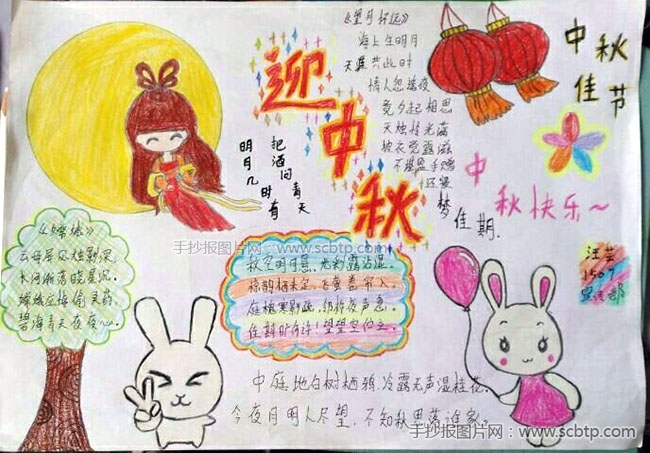 《望月怀远》
海上生明月
天涯共此时
情人怨遥夜
竟夕起相思
灭烛怜光满
披衣觉露滋
不堪盈手赠
还寝
梦佳期.
迎中秋
中秋
佳节
明月几时有
把酒问青天
中
秋快乐~
手抄报图片网：www.scbtp.com
《嫦娥》
云母屏风烛影深,
长河渐落晓星沉.
嫦娥应悔偷灵药,
碧海青天夜夜心.
秋空明月悬,光彩露沾湿.
惊鹊栖未定,飞萤卷帘入.
庭槐寒影疏,邻杵夜声急.
佳期旷何许!望望空伫立.
1507
宣传部
中庭地白树栖鸦,冷露无声湿桂花.
今夜月明人尽望,不知秋思落谁家.
手抄报图片网：www.scbtp.com